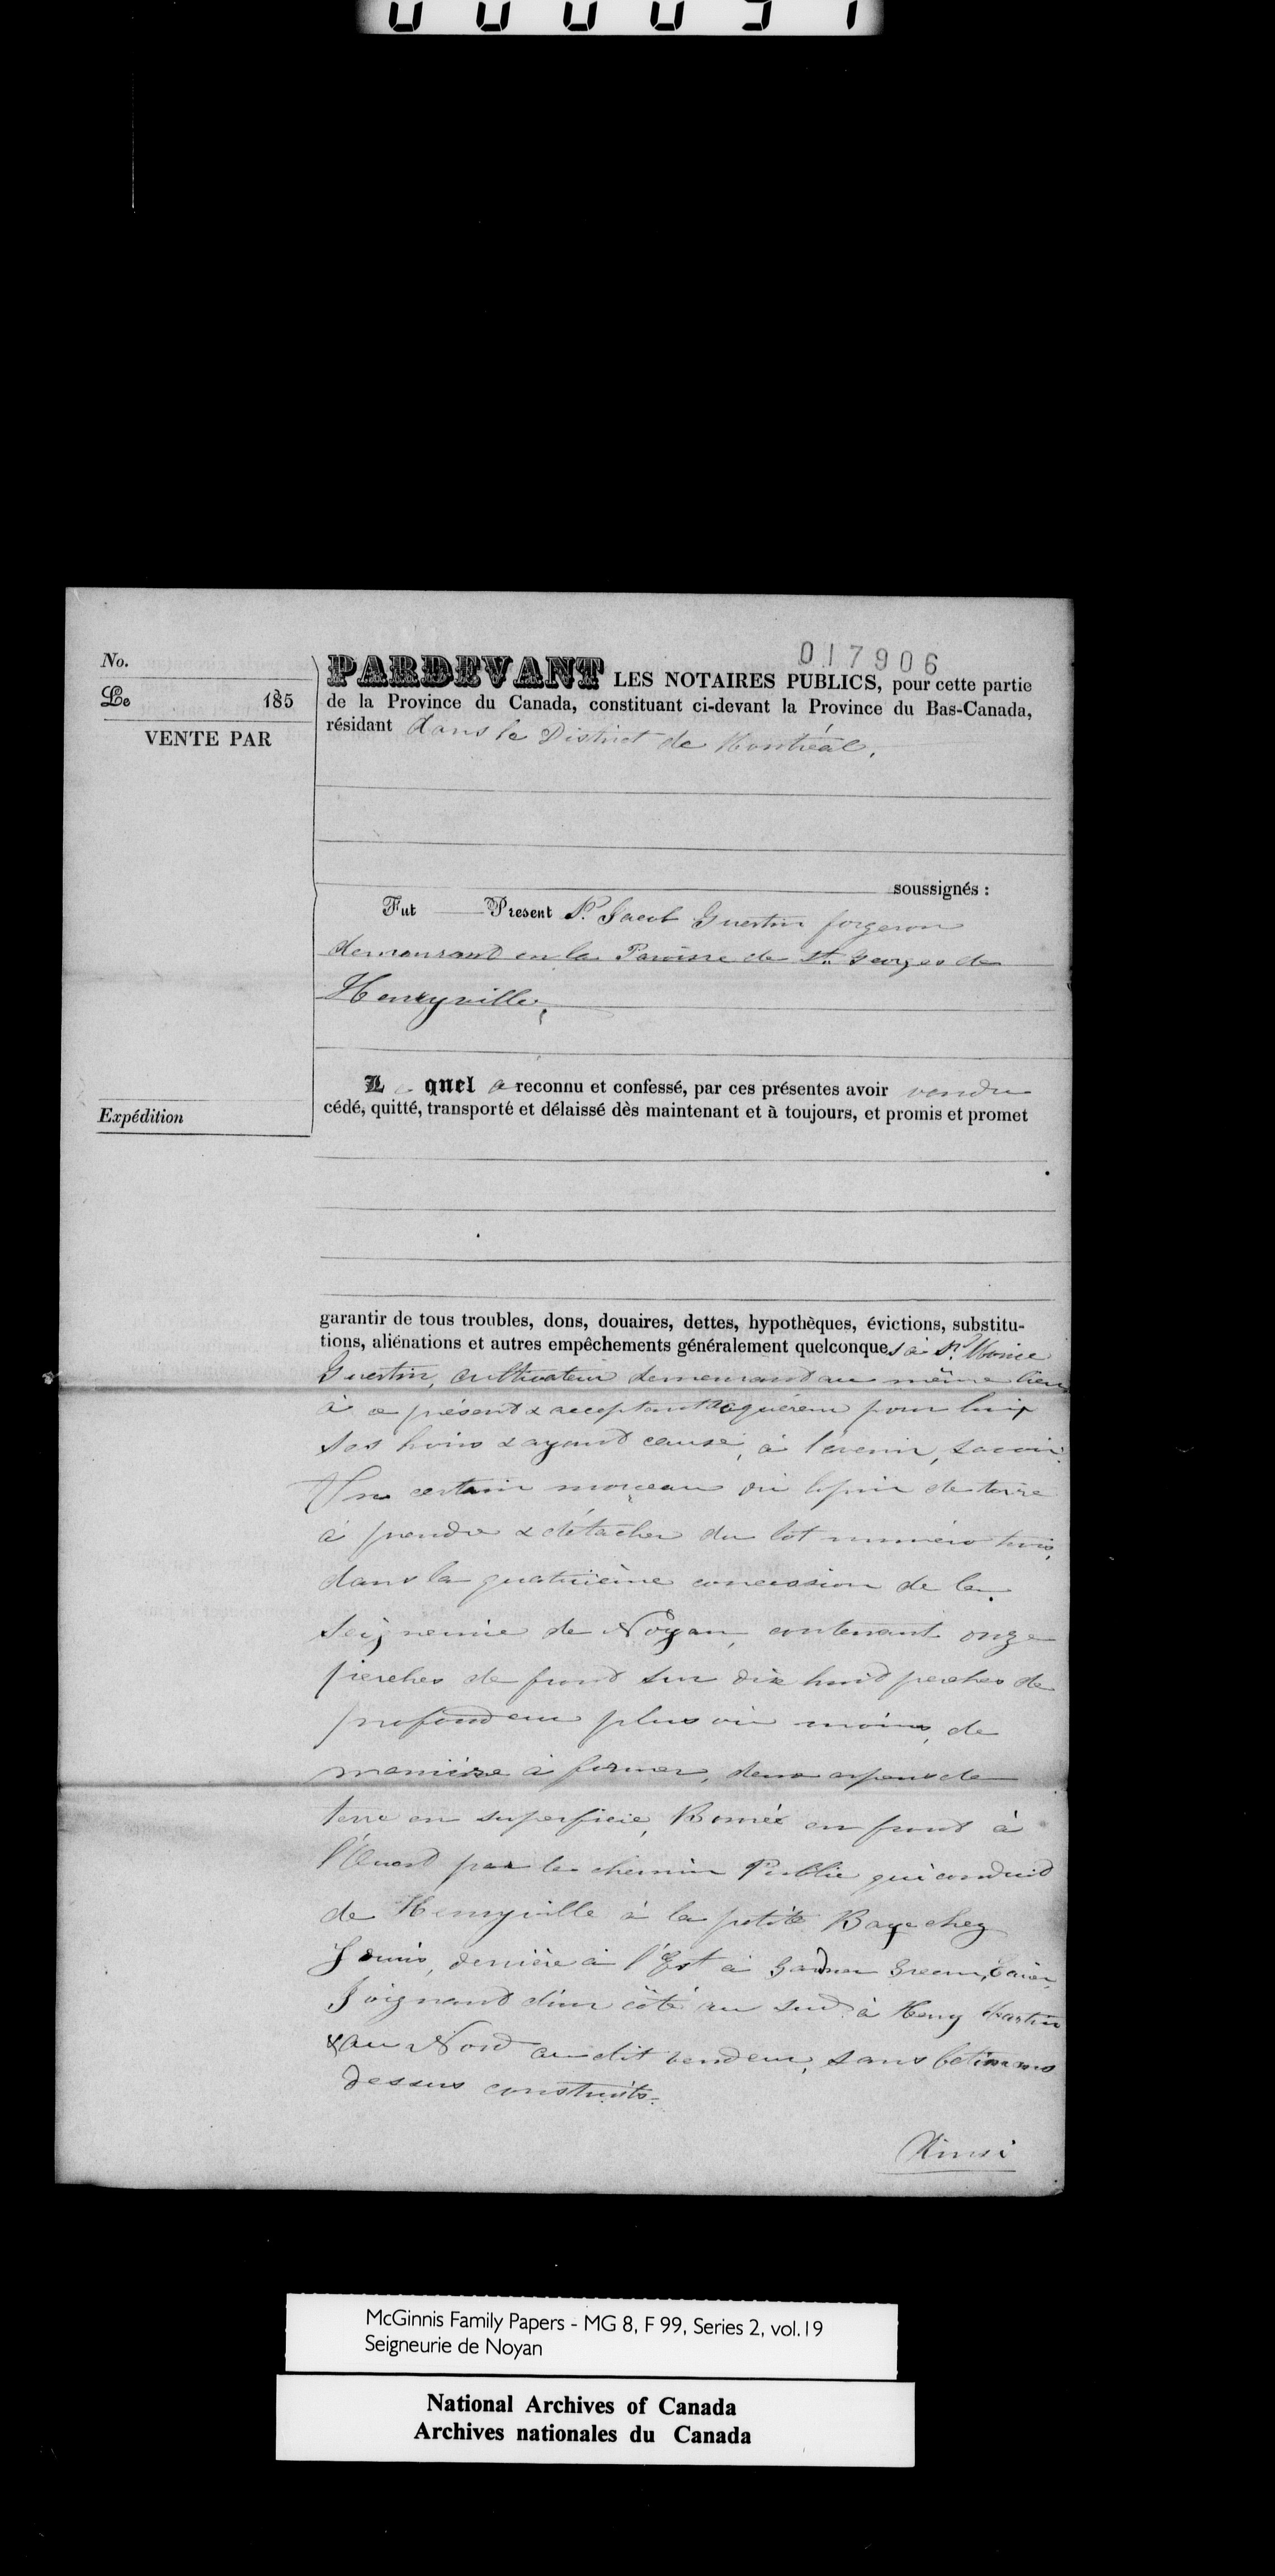 017906
No.
Le 185
VENTE PAR
Expédition
PARDEVANT LES NOTAIRES PUBLICS, pour cette partie
de la Province du Canada, constituant ci-devant la Province du Bas-Canada,
résidant dans le District de Montréal,
soussignés :
Fut Present Sr. Jacob Guertin forgeron
demeurant en la Paroisse de St. Georges de
Henryville,
Le quel a reconnu et confessé, par ces présentes avoir vendu
cédé, quitté, transporté et délaissé dès maintenant et à toujours, et promis et promet
garantir de tous troubles, dons, douaires, dettes, hypothèques, évictions, substitu-
tions, aliénations et autres empêchements généralement quelconques à Sr.
Guertin, cultivateur demeurant au même lieu
à ce présent & acceptant acquéreur pour lui
ses hoirs & ayant cause, à l'avenir, savoir:
Un certain morceau ou lopin de terre
à prendre & détacher du lot numéro trois,
dans la quatrième concession de la
Seigneurie de Noyan, contenant onze
perches de front sur dix huit perches de
profondeur plus ou moins, de
manière à former, deux arpents de
terre en superficie, Borné en front à
l'Ouest par le chemin Public qui conduit
de Henryville à la petite Baye chez
derrière à l'Est à Gardner Green,
Joignant d'un côté au sud à Henry Martin
& au Nord au dit vendeur, sans batimens
dessus construits.
Ainsi
McGinnis Family Papers - MG 8, F 99, Series 2, vol.19
Seigneurie de Noyan
National Archives of Canada
Archives nationales du Canada